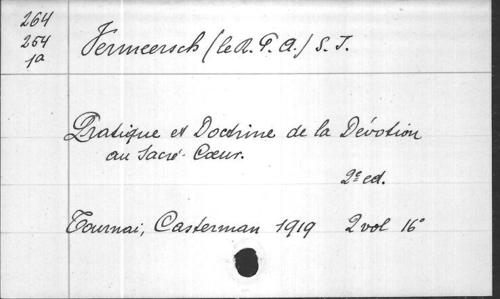 264
254
1a
Vermeersch (le R. P. A.) S. J.
Pratique et Doctrine de la Dévotion
au Sacré-Cœur.
2e ed.
Tournai, Casterman 1919 2 vol 16°